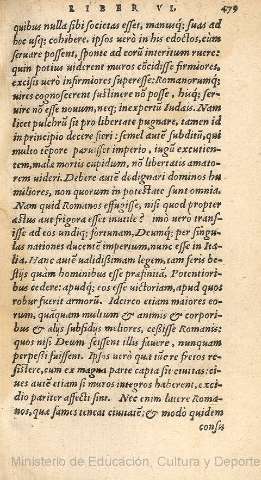 LIBER VI. 479
quibus nulla sibi societas esset, manusq́; suas ad
hoc usq́; cohibere. ipsos uerò in his edoctos, cum
seruare possent, sponte ad eorū interitum ruere:
quin potius uiderent muros cōcidisse firmiores,
excisis uerò infirmiores superesse: Romanorumq́;
uires cognoscerent sustinere nō posse, huic; ser-
uire nō esse nouum, nec; inexpertū Iudæis. Nam
licet pulchrū sit pro libertate pugnare, tamen id
in principio decere fieri: semel autē subditū, qui
multo tēpore paruisset imperio, iugū excutien-
tem, male mortis cupidum, nō libertatis amato-
rem uideri. Debere autē dedignari dominos hu
miliores, non quorum in potestate sunt omnia.
Nam quid Romanos effugisse, nisi quod propter
æstus aut frigora esset inutile? imò uerò transf-
isse ad eos undiq́; fortunam, Deumq́; per singu-
las nationes ducentē imperium, nunc esse in Ita
lia. Hanc autē ualidissimam legem, tam feris be-
stijs quàm hominibus esse præfinitā. Potentiori-
bus cedere: apudq́; eos esse uictoriam, apud quos
robur fuerit armorū. Idcirco etiam maiores eo-
rum, quāquam multum & animis & corpori-
bus & alijs subsidijs meliores, cessisse Romanis:
quos nisi Deum scissent illis fauere, nunquam
perpessi fuissent. Ipsos uerò qua tuēre fretos re-
sistere, cum ex magna parte capta sit ciuitas: ci-
ues autē etiam si muros integros haberent, exci-
dio pariter affecti sint. Nec enim latere Roma-
nos, quæ fames teneat ciuitatē, & modò quidem
consu
Ministerio de Educación, Cultura y Deporte